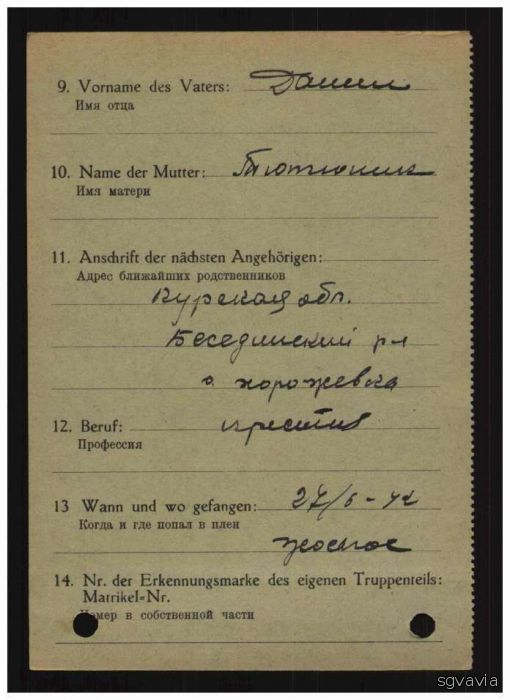 9. Vorname des Vaters: Данил
Имя отца
10. Name der Mutter: Тютюник
Имя матери
11. Anschrift der nächsten Angehörigen:
Адрес ближайших родственников
Курская обл.
Беседінский р-н
12. Beruf:
Профессия
13 Wann und wo gefangen: 27/6-42
Когда и где попал в плен
14. Nr. der Erkennungsmarke des eigenen Truppenteils:
Matrikel-Nr.
Номер в собственной части
sgvavia